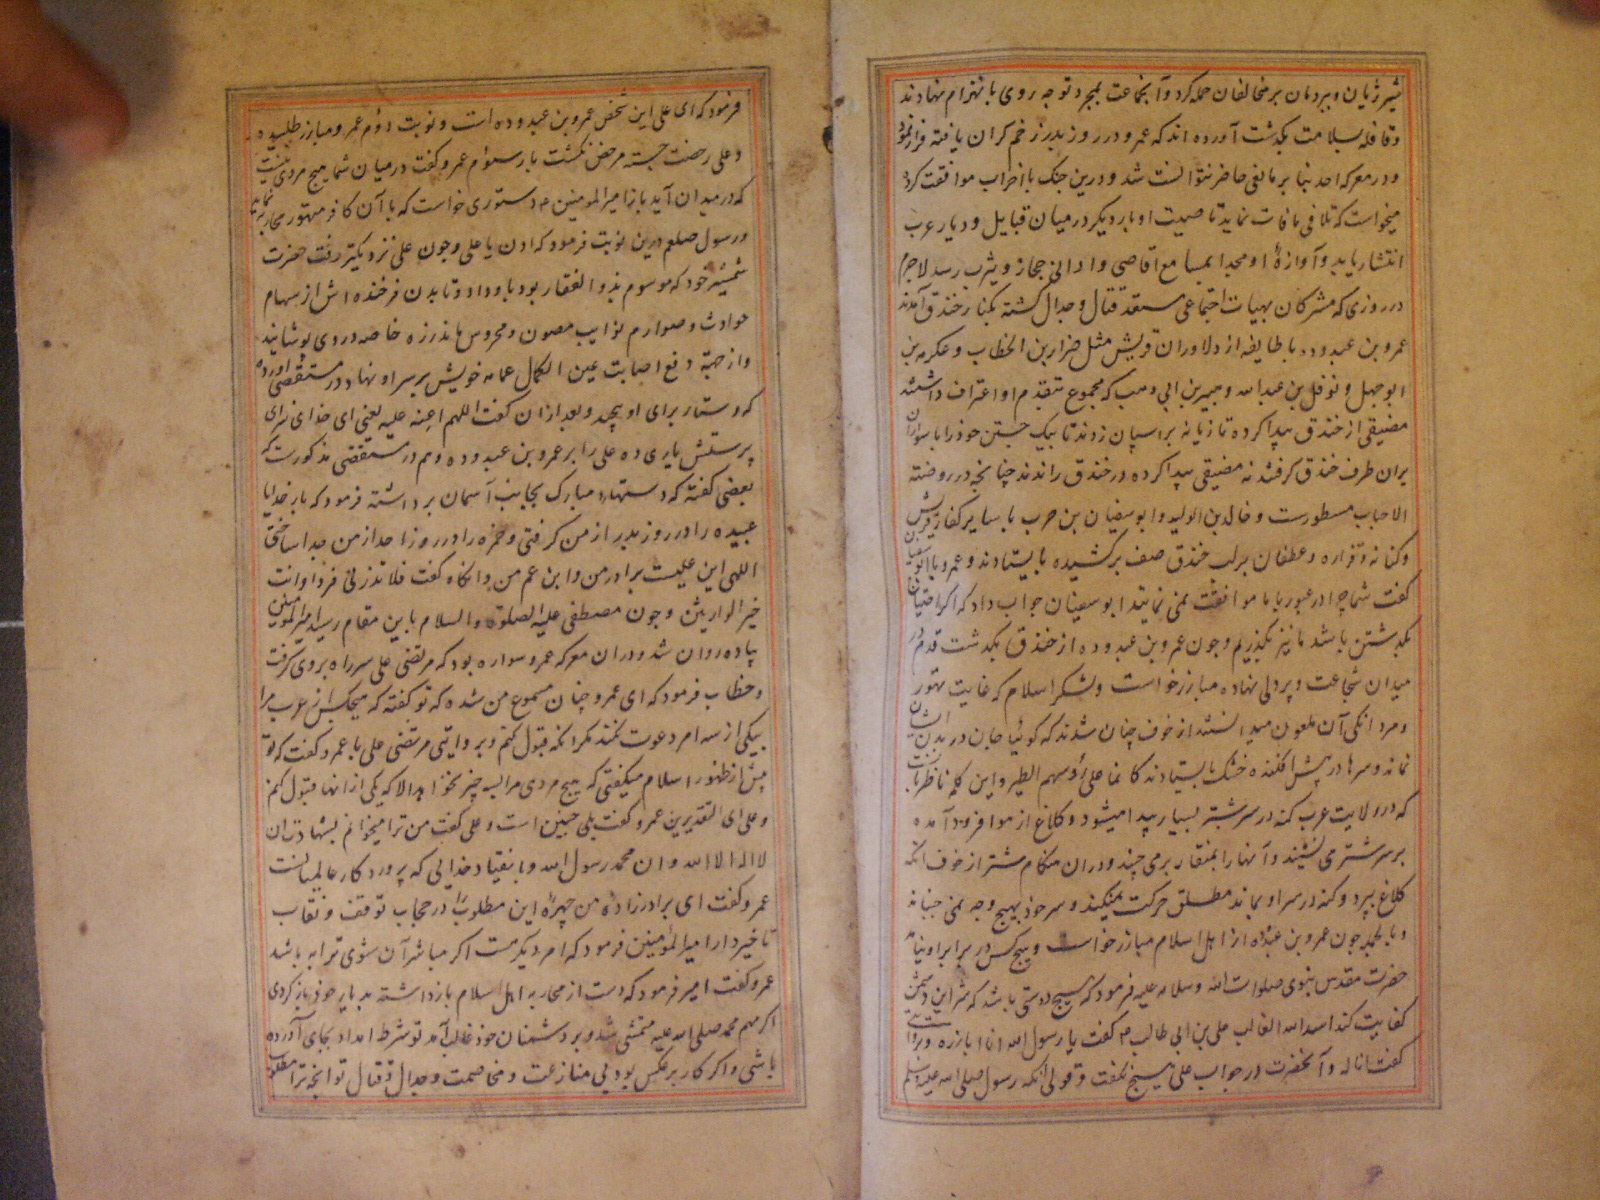 شیر ژیان و ببر دمان بر مخالفان حمله کرد و آنجماعت بمجرد توجه روی بانهزام نهادند
و قافله بسلامت بگذشت آورده اند که عمرو در روز بدر زخم گران یافته فرار نمود
و در معرکه احد بنا بر مانعی حاضر نتوانست شد و درین جنگ با احزاب موافقت کرده
میخواست که تلافی مافات نماید تا صیت او بار دیگر در میان قبایل و دیار عرب
انتشار یابد و آوازهٔ او مجددا بمسامع اقاصی و ادانی حجاز و یثرب رسد لاجرم
در روزی که مشرکان بهیات اجتماعی مستعد قتال و جدال گشته بکنار خندق آمدند
عمرو بن عبدوده با طایفه از دلاوران قریش مثل ضرار بن الخطاب و عکرمه بن
ابوجهل و نوفل بن عبدالله و هبیره بن ابی وهب که مجموع بتقدم او اعتراف داشتند
مضیقی از خندق پیدا کرده تازیانه بر اسپان زدند تا بیک جستن خود را با سواران
بران طرف خندق گرفتند نه مضیقی پیدا کرده در خندق راندند چنانچه در روضة
الاحباب مسطورست و خالد بن الولید و ابوسفیان بن حرب با سایر کفار قریش
و کنانه و فزاره و غطفان بر لب خندق صف برکشیده بایستادند و عمرو با ابوسفیان
گفت شما چرا در عبور با ما موافقت نمی نمایید ابوسفیان جواب داد که اگر احتیاج
بگذشتن باشد ما نیز بگذریم و چون عمرو بن عبدوده از خندق بگذشت قدم در
میدان شجاعت و پردلی نهاده مبارز خواست و لشکر اسلام که غایت تهور
و مردانگی آن ملعون میدانستند از خوف چنان شدند که گوئیا جان در بدن ایشان
نماند و سرها در پیش افکنده خشک بایستادند کانما علی رؤسهم الطیر و این کلمه ناظر بانست
که در ولایت عرب کنه در سر شتر بسیار پیدا میشود و کلاغ از هوا فرود آمده
بر سر شتر می نشیند و آنها را بمنقار برمی چیند و دران هنگام شتر از خوف آنکه
کلاغ بپرد و کنه در سر او بماند مطلق حرکت نمیکند و سر خود بهیچ وجه نمی جنباند
و بالجمله چون عمرو بن عبدوده از اهل اسلام مبارز خواست و هیچکس در برابر او نیامد
حضرت مقدس نبوی صلوات الله و سلامه علیه فرمود که هیچ دوستی باشد که شر این دشمن
کفایت کند اسد الله الغالب علی بن ابی طالب ع گفت یا رسول الله انا ابارزه و بروایتی
گفت انا له و آنحضرت در جواب علی هیچ نگفت و قولی آنکه رسول صلی الله علیه و سلم
فرمود که ای علی این شخص عمرو بن عبدوده است و نوبت دوم عمرو مبارز طلبیده
و علی رخصت جسته مرخص نگشت بار سوم عمرو گفت در میان شما هیچ مردی نیست
که در میدان آید باز امیرالمومنین ع دستوری خواست که با آن کافر متهور محاربه نماید
و رسول صلعم درین نوبت فرمود که ادن یا علی و چون علی نزدیکتر رفت حضرت
شمشیر خود که موسوم بذوالفقار بود باو داد و تا بدن فرخنده اش از سهام
حوادث و صوارم نوایب مصون و محروس ماند زره خاصه در وی پوشانید
و از جهة دفع اصابت عین الکمال عمامه خویش بر سر او نهاد در مستقصی آورده
که دستار برای او پیچید و بعد ازان گفت اللهم اعنه علیه یعنی ای خدای سزای
پرستش یاری ده علی را بر عمرو بن عبدوده و هم در مستقصی مذکورست که
بعضی گفته که دستهاء مبارک بجانب آسمان برداشته فرمود که بار خدایا
عبیده را در روز بدر از من گرفتی و حمزه را در روز احد از من جدا ساختی
اللهی این علیست برادر من و ابن عم من و انگاه گفت فلا تذرنی فردا و انت
خیر الوارثین و چون مصطفی علیه الصلوة والسلام باین مقام رسید امیرالمومنین
پیاده روان شد و دران معرکه عمرو سواره بود که مرتضی علی سر راه بروی گرفت
و خطاب فرمود که ای عمرو چنان مسموع من شده که تو گفته که هیچکس از عرب مرا
بیکی از سه امر دعوت نکند مگر انکه قبول کنم و بروایتی مرتضی علی با عمرو گفت که تو
پیش از ظهور اسلام میگفتی که هیچ مردی مرا بسه چیز نخواند الا که یکی از انها قبول کنم
و علی ای التقدیرین عمرو گفت بلی چنین است و علی گفت من ترا میخوانم بشهادت ان
لا اله الا الله و ان محمد رسول الله و بانقیاد خدایی که پروردگار عالمیانست
عمرو گفت ای برادرزادهٔ من چهرهٔ این مطلوب را در حجاب توقف و نقاب
تاخیر دار امیرالمؤمنین فرمود که امر دیگرست اگر مباشر آن شوی ترا به باشد
عمرو گفت امیر فرمود که دست از محاربه اهل اسلام بازداشته بدیار خود بازگردی
اگر مهم محمد صلی الله علیه متمشی شد و بر دشمنان خود غالب آمد تو شرط امداد بجای آورده
باشی و اگر کار برعکس بود بی منازعت و مخاصمت و جدال و قتال تو انچه ترا مطلوب